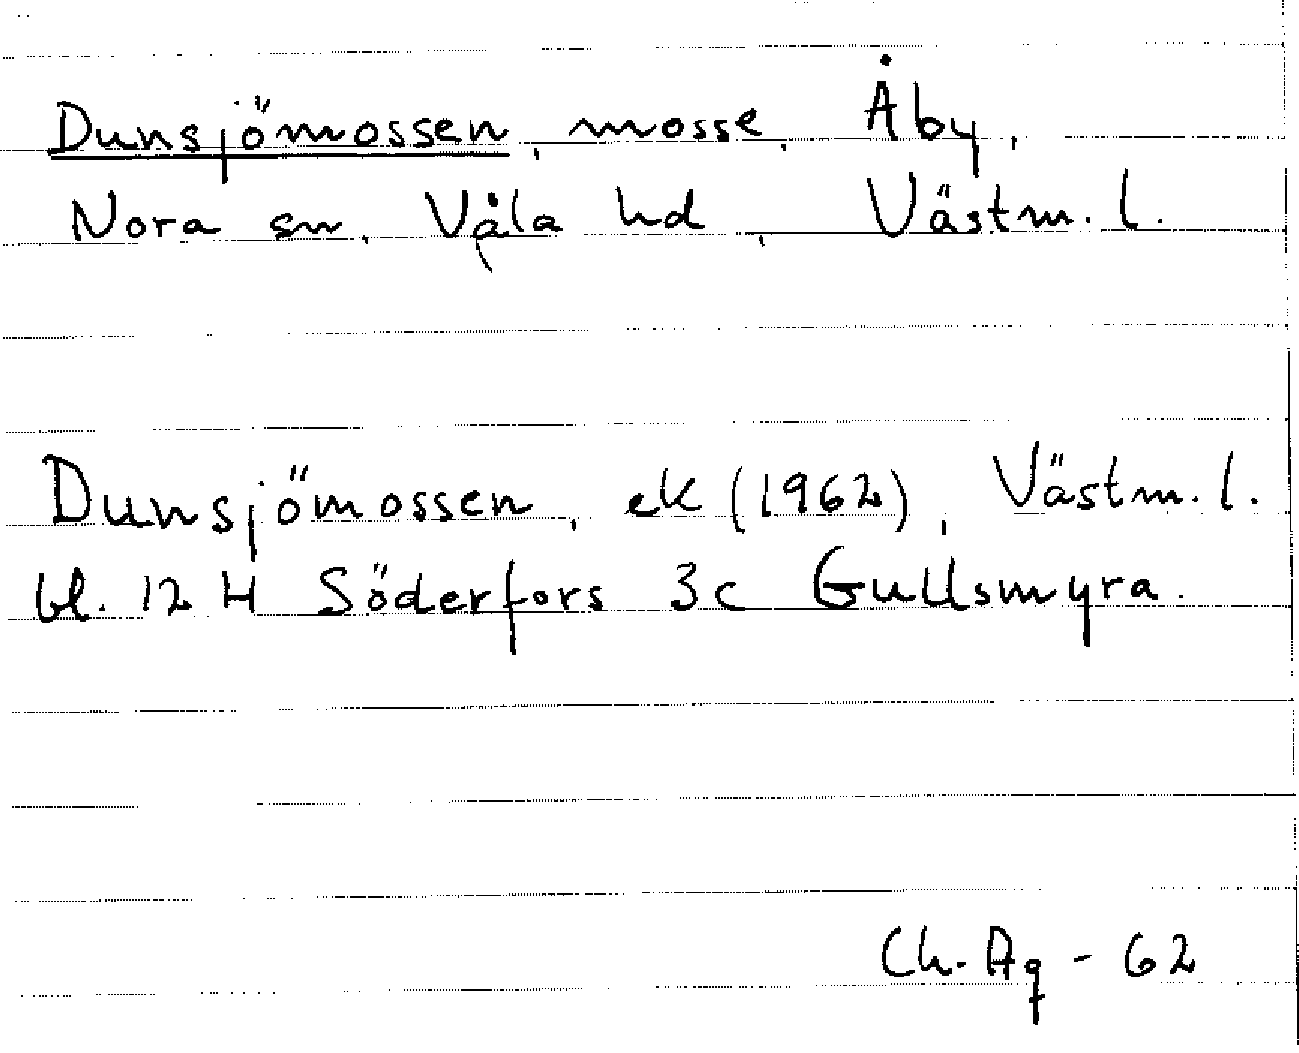 Dunsjömossen, mosse, Åby,
Nora sn, Våla hd, Västm. l.
Dunsjömossen, ek (1962), Västm. l.
bl. 12 H Söderfors 3c Gullsmyra.
Ch. Aq - 62